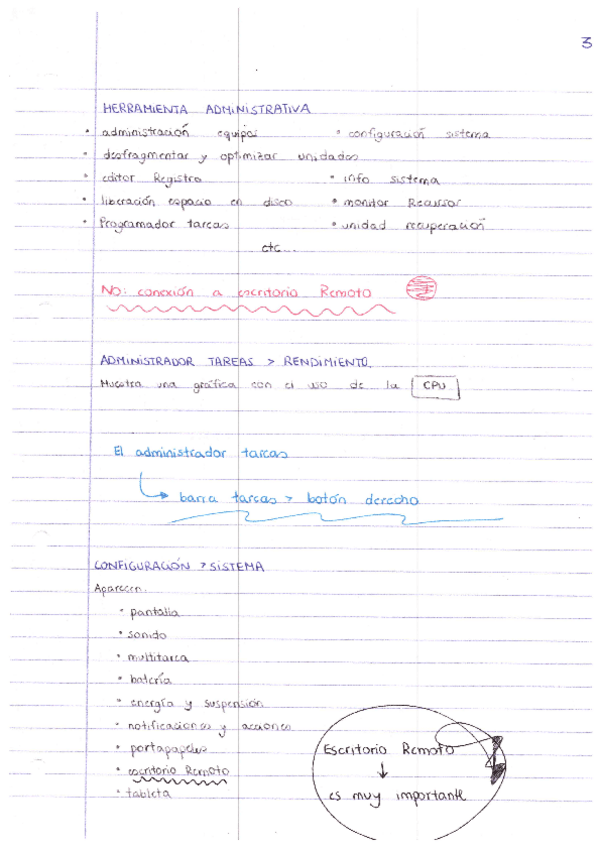 3
HERRAMIENTA ADMINISTRATIVA
• administración equipos • configuración sistema
• desfragmentar y optimizar unidades
• editor Registro • info sistema
• liberación espacio en disco • monitor Recursos
• Programador tareas • unidad recuperación
etc...
No: conexión a escritorio Remoto
ADMINISTRADOR TAREAS > RENDIMIENTO.
Muestra una gráfica con el uso de la CPU
El administrador tareas
barra tareas > botón derecho
CONFIGURACIÓN > SISTEMA
Aparecen:
• pantalla
• sonido
• multitarea
• batería
• energía y suspensión
• notificaciones y acciones
• portapapeles
• escritorio Remoto
• tableta
Escritorio Remoto
↓
es muy importante